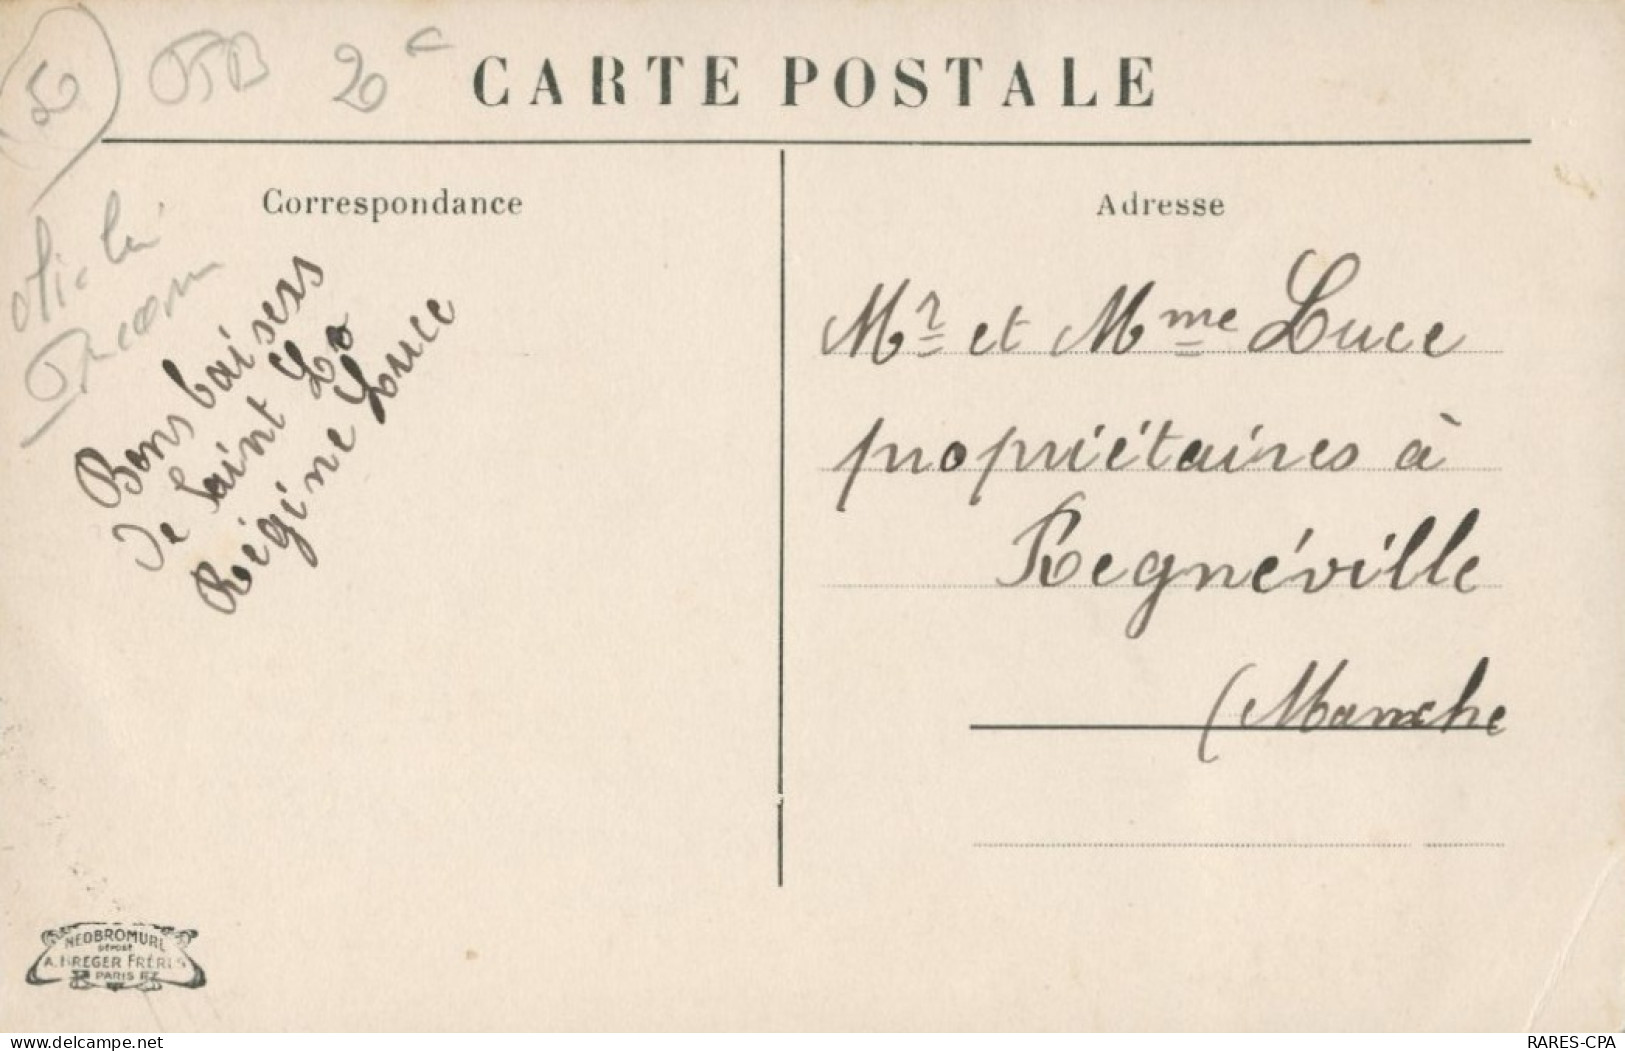 CARTE POSTALE
Correspondance
Bons baisers
de Saint Lo
Régine Luce
Adresse
Mr et Mme Luce
propriétaires à
Regnéville
(Manche
NEOBROMURE
DÉPOSÉ
A. BREGER FRÈRES
PARIS
www.delcampe.net
RARES-CPA